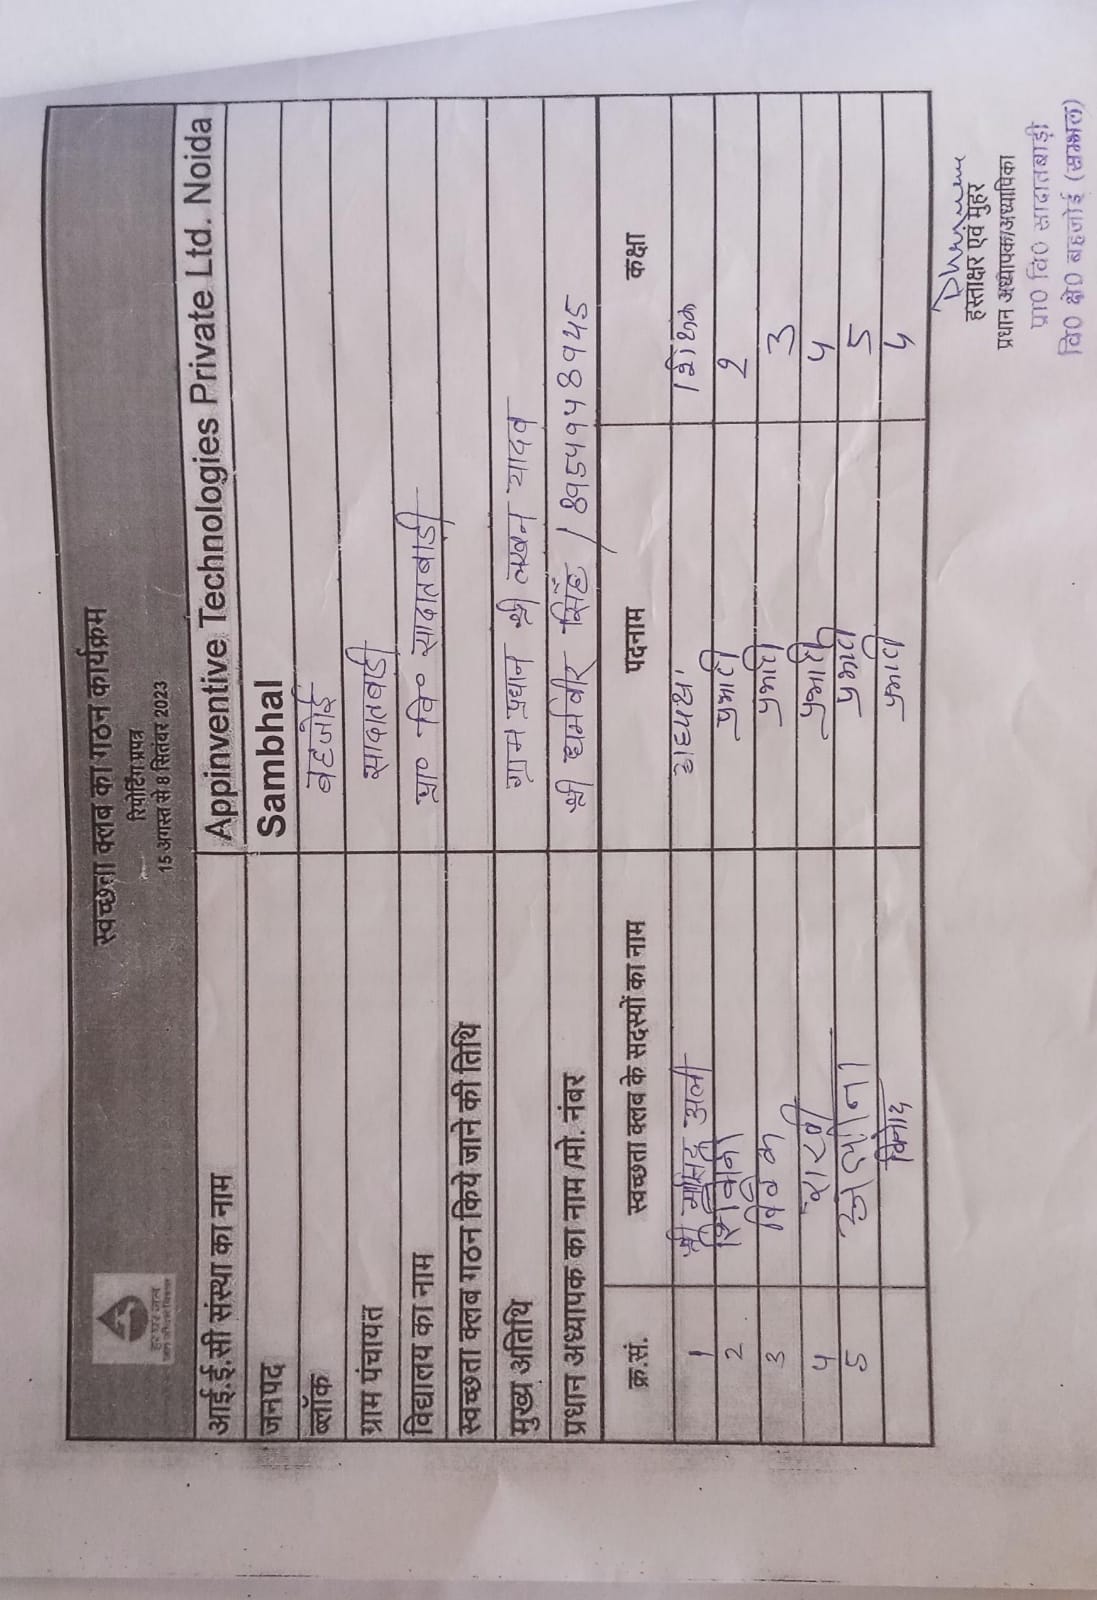 स्वच्छता क्लब का गठन कार्यक्रम
रिपोर्टिंग प्रपत्र
15 अगस्त से 8 सितंबर 2023
हर घर जल
आई.ई.सी संस्था का नाम Appinventive Technologies Private Ltd. Noida
जनपद Sambhal
ब्लॉक बहजोई
ग्राम पंचायत सादातबाडी
विद्यालय का नाम प्रा० वि० सादातबाडी
स्वच्छता क्लब गठन किये जाने की तिथि
मुख्य अतिथि ग्राम प्रधान श्री लखन यादव
प्रधान अध्यापक का नाम /मो. नंबर श्री धर्मवीर सिंह /
क्र.सं. स्वच्छता क्लब के सदस्यों का नाम पदनाम कक्षा
1 श्री अली अध्यक्ष शिक्षक
2 2
3 3
4 4
5 5
विनोद 5
हस्ताक्षर एवं मुहर
प्रधान अध्यापक/अध्यापिका
प्रा0 वि0 सादातबाड़ी
वि0 क्षे0 बहजोई (सम्भल)